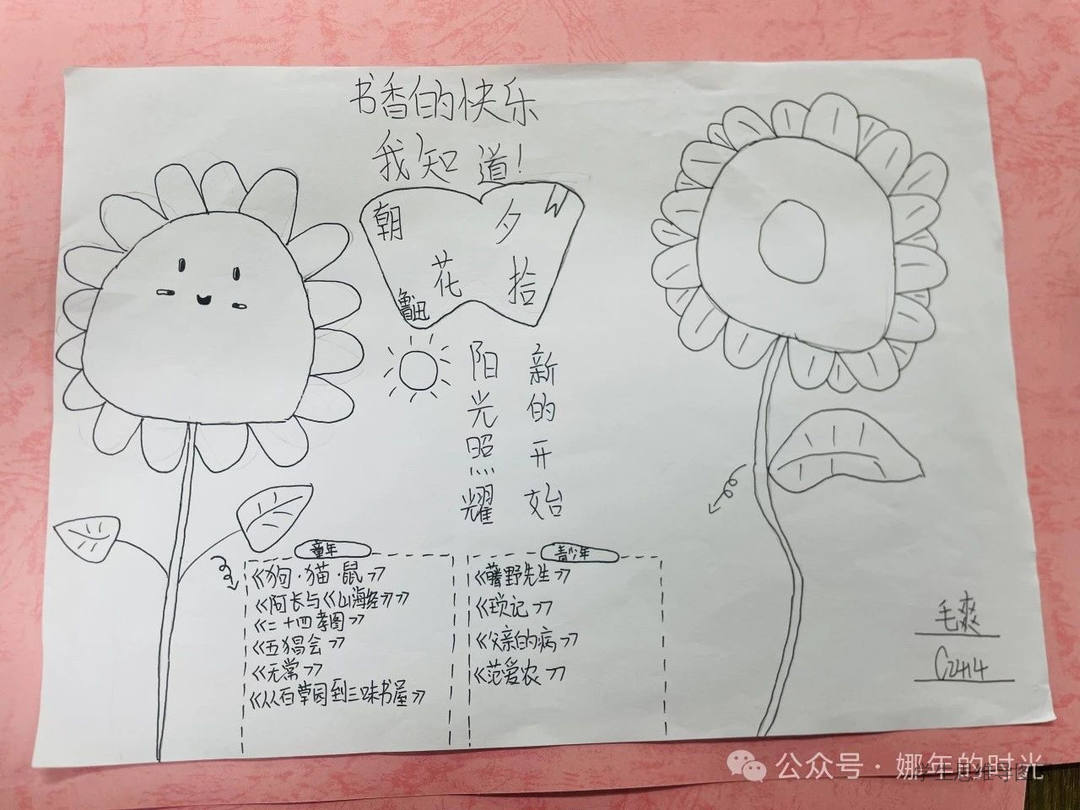 书香的快乐
我知道!
朝花夕拾
鲁迅
阳光照耀
新的开始
童年
《狗·猫·鼠》
《阿长与《山海经》》
《二十四孝图》
《五猖会》
《无常》
《从百草园到三味书屋》
青少年
《藤野先生》
《琐记》
《父亲的病》
《范爱农》
毛爽
C2414
公众号·娜年的时光